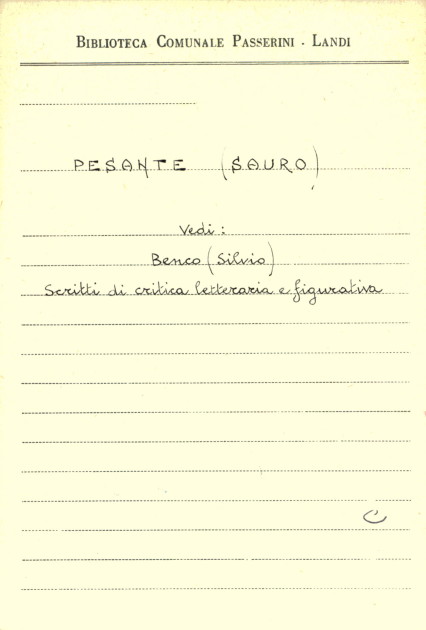 BIBLIOTECA COMUNALE PASSERINI - LANDI
PESANTE (SAURO)
Vedi:
Benco (Silvio)
Scritti di critica letteraria e figurativa